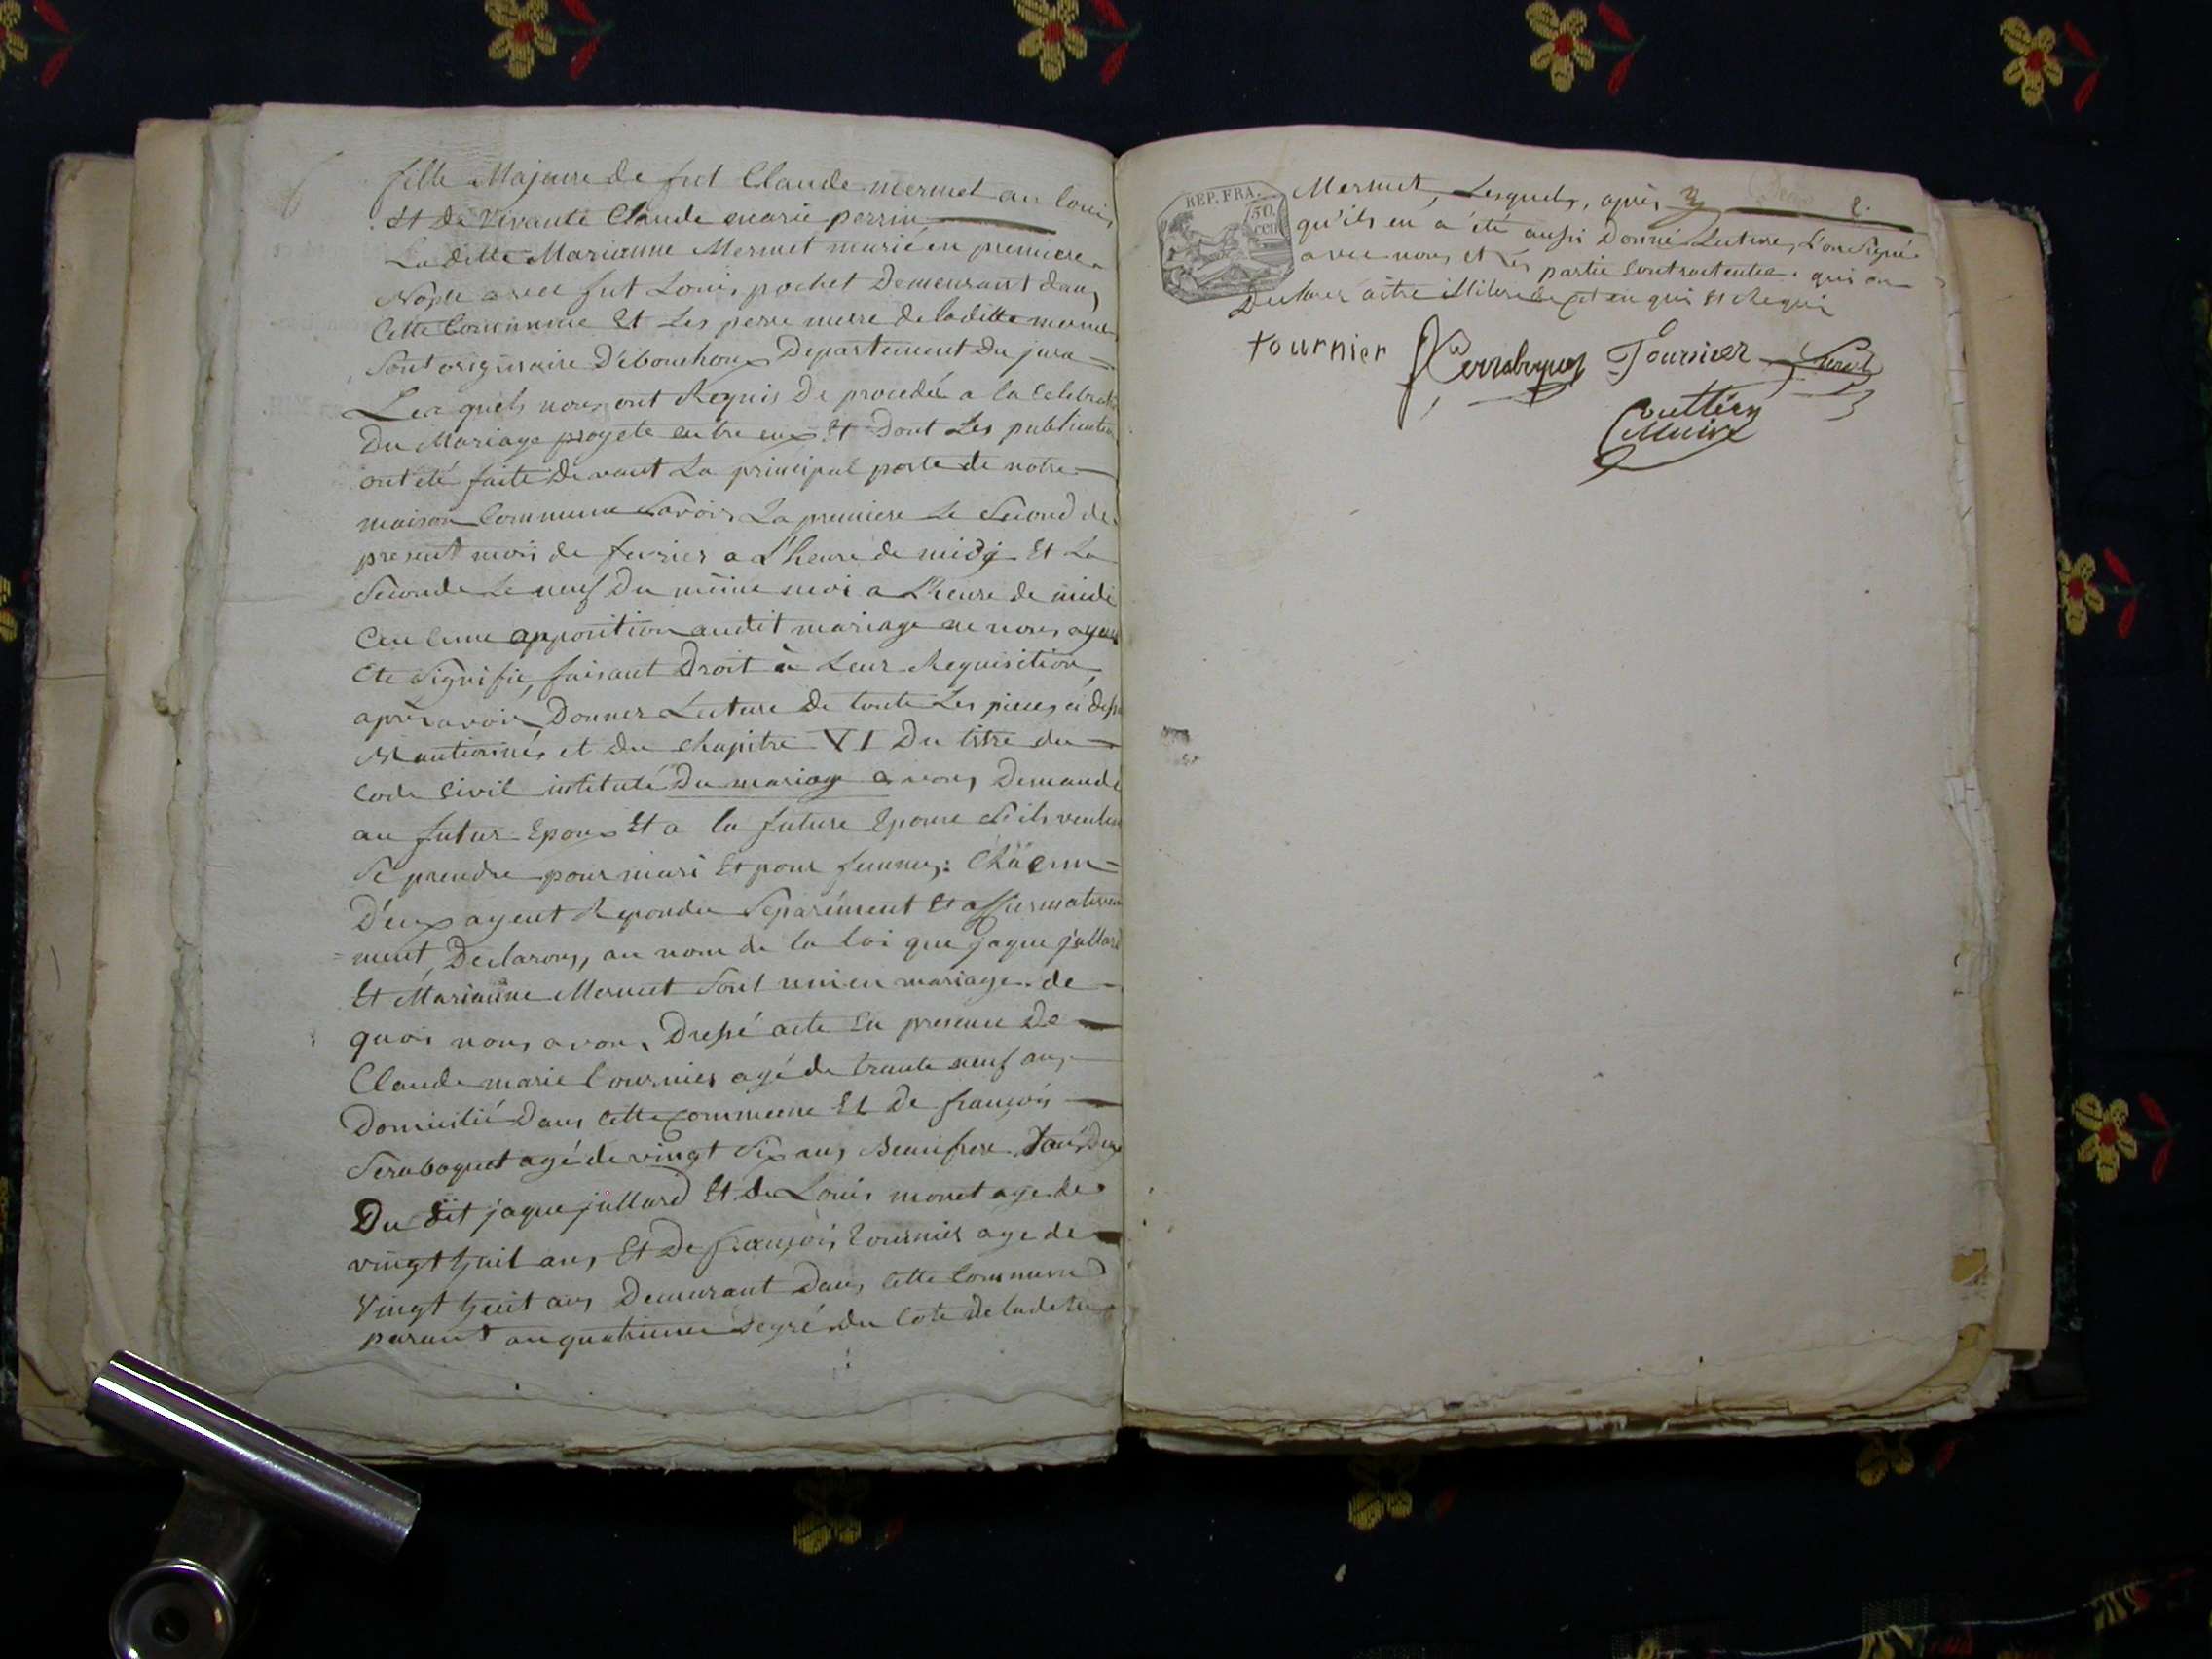 fille Majeure de fut Claude mermet au louis
Et De Vivante Claude marie perrin
La ditte Marianne Mermet marié en premiere
Nopse avec fut Louis pochet Demeurant dans
Cette Commune Et Les perre merre de la ditte mermet
Sont originaire Débouchoux Departement Du jura
Lesquels nous ont Requis De procedé a la Celebrati
Du Mariage progeté entre eux Et Dont Les publication
ont été faite Devant La principal porte de notre
maison Commune Savoir La premiere Le Second de
present mois de fevrier a L'heure de midj Et La
Seconde Le neuf Du même moi a L'heure de midi
aucune opposition audit mariage ne nous ayant
Ete Signifié, faisant Droit à Leur Requisition,
après avoir Donner Lecture De toute Les pieces ci dessu
Mantionnés et du Chapitre VI Du titre du
Code Civil intitulé Du mariage avons Demandé
au futur Epoux Et a la future Epouse S'ils veulen
Se prendre pour mari Et pour femme; Chäcun
D'eux ayent Repondu Separément Et affirmative
=ment, Declarons, au nom de la loi que jaque jullard
Et Marianne Mermet Sont uni en mariage. de
quoi nous avons Dressé acte En presence De
Claude marie tournier agé de trante neuf ans
Domicilié Dans Cette Commune Et De françois
Serraboquet agé de vingt Six ans Beaufrere
Du dit jaque jullard Et de Louis monet age de
vingt huit ans Et De françois tournier age de
Vingt huit ans Demurant Dans Cette Commune
parant au quatrieme Degré du Coté De ladite
REP. FRA.
50
cen
Mermet, Lesquels, après
qu'ils en a été aussi Donné Lecture, L'on Signé
avec nous et les partie Contractentes. qui on
Declarer aitre illiterée et en qui Et Requi
tournier Serraboquet Tournier
Maire